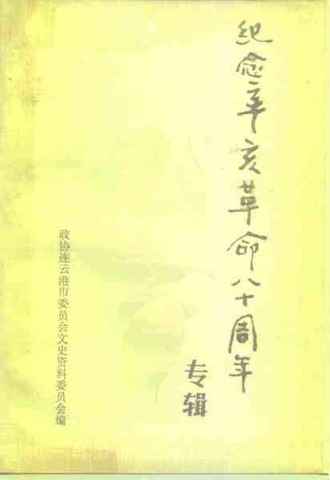 纪念辛亥革命八十周年
专辑
政协连云港市委员会文史资料委员会编